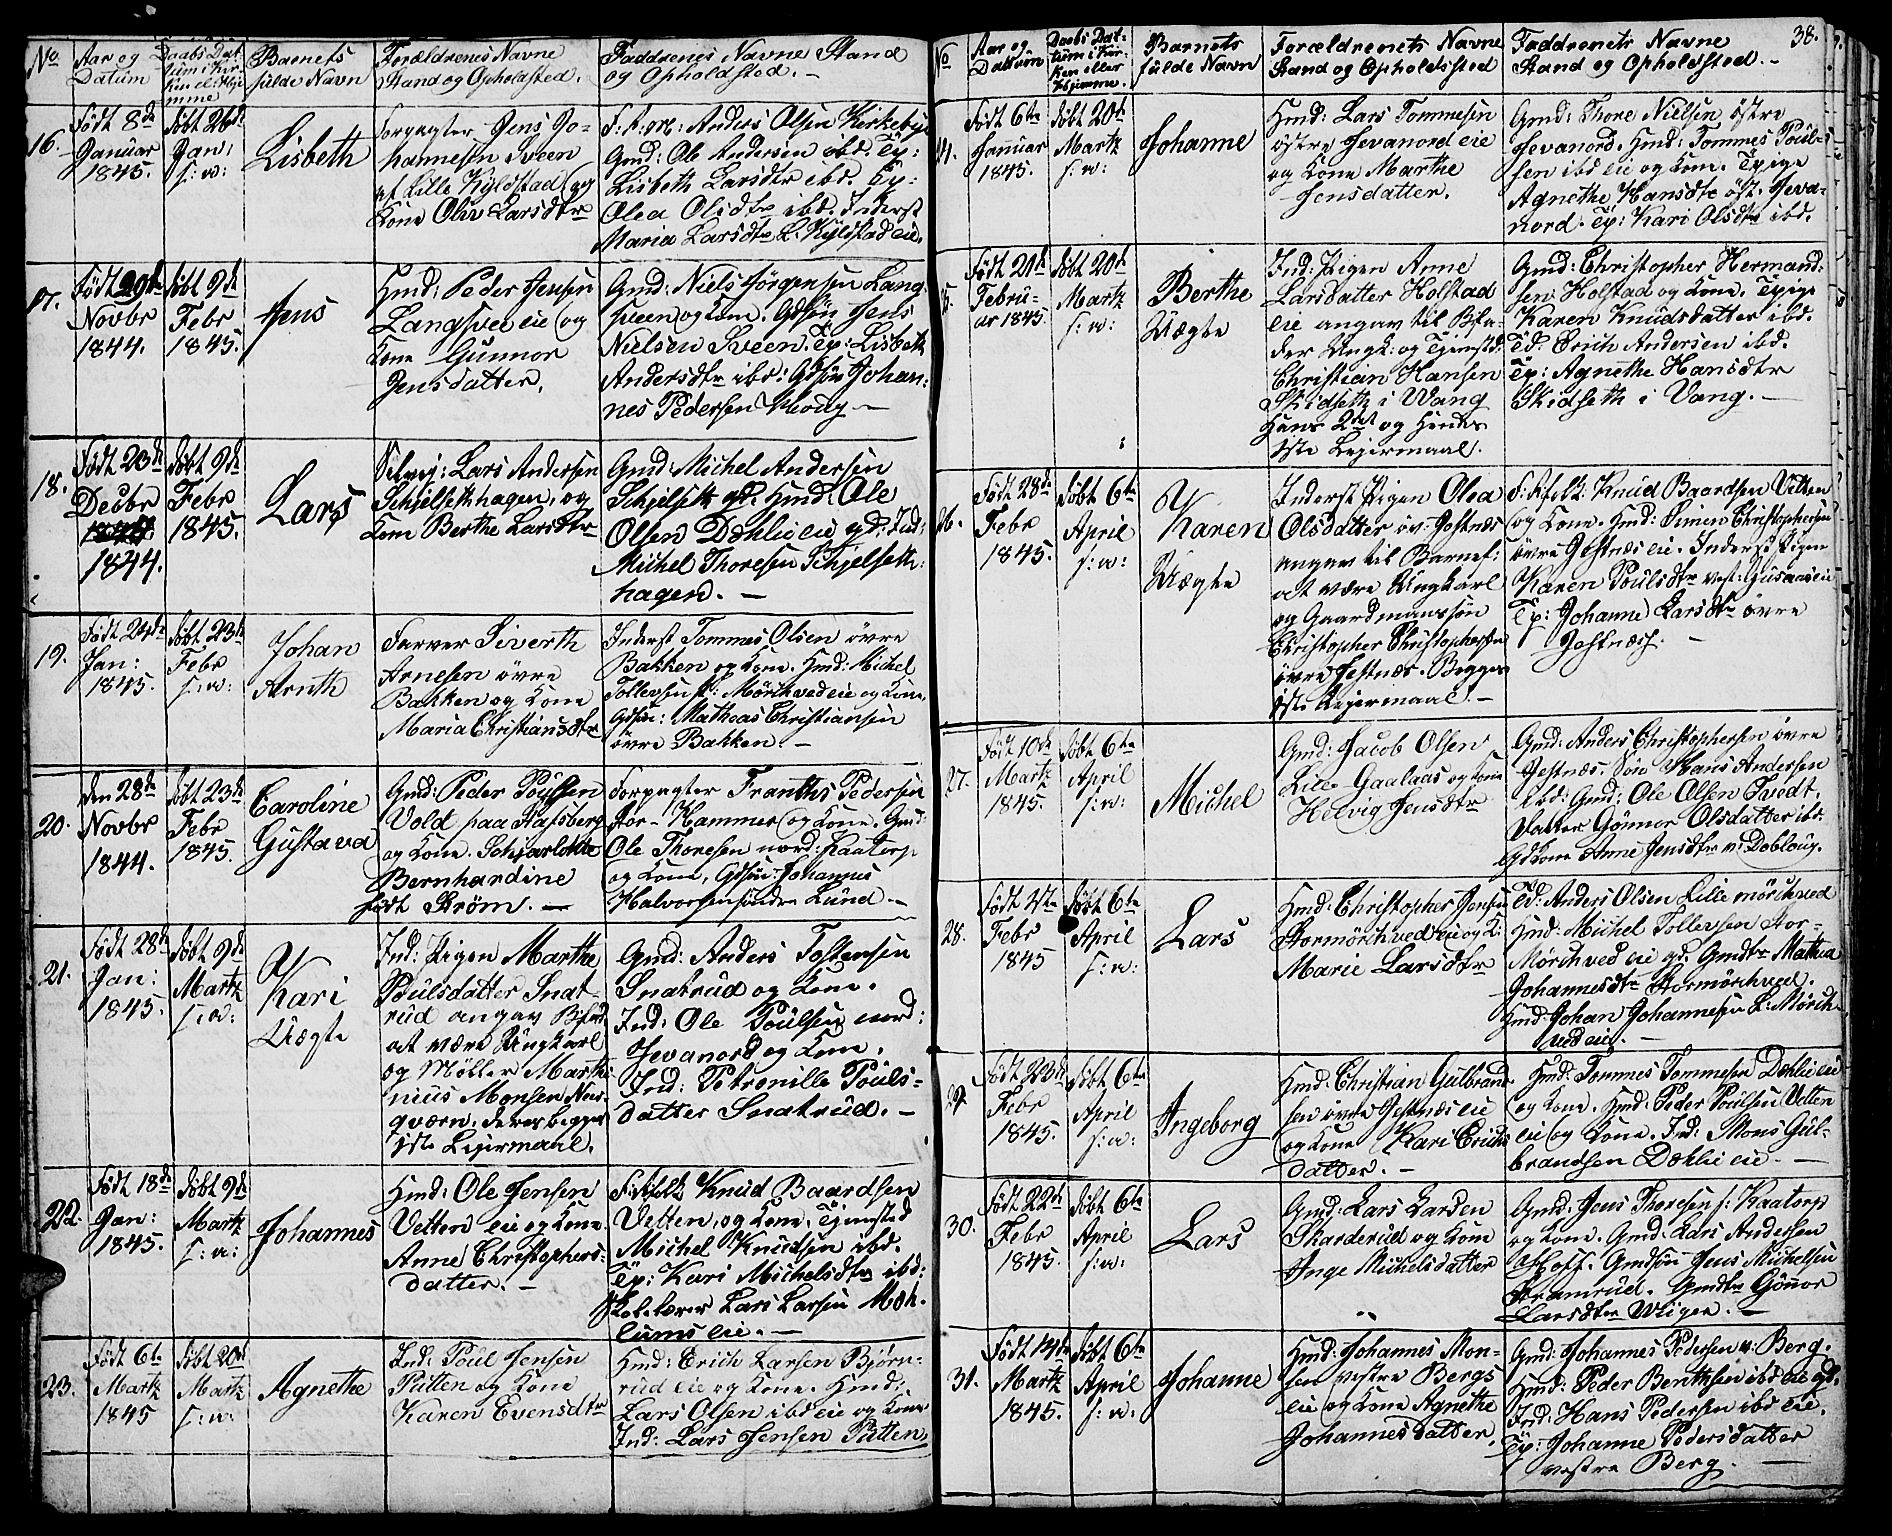 No
Aar og
Datum
Daabs Dat
tum i Kir
ken el: Hje
mme
Barnets
fulde Navn
Forældrenes Navne
Stand og Opholdsted.
Faddrenes Navne Stand
og Opholdsted. —
16.
Født 8de
Januar
1845.
døbt 26de
Jan:
f: v:
Lisbeth
Forpagter Jens Jo-
hannesen Sveen
af Lille Kyldstad og
Kone Oliv Larsdtr
F. A: M: Anders Olsen Kirkebye
Gmd: Ole Andersen ibd. Tp:
Lisbeth Larsdtr ibd. Tp:
Olea Olsdtr ibd. Inderst
Maria Larsdtr L. Kyldstad eie.
17.
Født 29de
Novbr
1844.
døbt 9de
Febr
1845.
Jens
Hmd: Peder Jensen
Langsvee eie og
Kone Gunnor
Jensdatter.
Gmd: Niels Jørgensen Lang
sveen og Kone. Gdsøn Jens
Nielsen Sveen. Tp: Lisbeth
Andersdtr ibd: Gdsøn Johan:
nes Pedersen —
18.
Født 23de
Decbr
1844.
døbt 9de
Febr
1845.
Lars
Selvej: Lars Andersen
Schjelsethhagen, og
Kone Berthe Larsdtr
Gmd: Michel Andersen
Schjelseth gd. Hmd: Ole
Olsen Dæhlie eie gd. Ind:
Michel Thoresen Schjelseth-
hagen. —
19.
Født 24de
Jan:
1845.
døbt 23de
Febr
f: v:
Johan
Arnth
Farver Siverth
Arnesen øvre
Bakken og Kone
Maria Christiansdtr
Inderst Tommes Olsen øvre
Bakken og Kone. Hmd: Michel
Tollevsen St: Mørchved eie og Kone.
Gdsøn: Matheas Christiansen
øvre Bakken. —
20.
den 28de
Novbr
1844.
døbt 23de
Febr
1845.
Caroline
Gustava
Gmd: Peder Poulsen
Vold paa Hafsberg
og Kone. Scharlotte
Bernhardine
født Strøm. —
Forpagter Franths Pedersen
Stor-Hammer og Kone. Gmd:
Ole Thoresen nord: Kaatorp
og Kone, Gdsøn: Johannes
Halvorsen søndre Lund. —
21.
Født 28de
Jan:
1845.
døbt 9de
Martz
f: v:
Kari
Uægte
Ind: Pigen Marthe
Poulsdatter Snat-
rud angav Bfad
at være Ungkarl
og Møller Marthi
nius Monsen Næs
qværn, deres begges
1ste Leiermahl.
Gmd: Anders Tostensen
Snatrud og Kone.
Ind: Ole Poulsen nord:
Jevanord og Kone.
Ind: Petronille Pouls-
datter Snatrud. —
22.
Født 18de
Jan:
1845.
døbt 9de
Martz
f: v:
Johannes
Hmd: Ole Jensen
Vetten eie og Kone
Anne Christophers-
datter. —
F: Afolk Knud Baardsen
Vetten, og Kone. Tjensted
Michel Knudsen ibd.
Tp: Kari Michelsdtr ibd:
Skolelærer Lars Larsen Mæh-
lums eie. —
23.
Født 6te
Martz
1845
døbt 20de
Martz
f: v:
Agnethe
Ind: Poul Jensen
Putten og Kone
Karen Evensdtr
Hmd: Erich Larsen Bjørn-
rud eie og Kone. Hmd:
Lars Olsen ibd eie og Kone
Ind: Lars Jensen Putten
38.
No
Aar og
Dattum
Daabs Dat-
tum i Kir-
ken eller
Hjemme.
Barnets
fulde Navn
Forældrenets Navne
Stand og Opholdssted
Faddrenets Navne
Stand og Opholdsted. —
Født 6te
Januar
1845.
døbt 20de
Martz
f: v:
Johanne
Hmd: Lars Tommesen
østre Jevanord eie
og Kone Marthe
Jensdatter.
Gmd: Thore Nielsen østre
Jevanord. Hmd: Tommes Poul-
sen ibd eie og Kone. Tpige
Agnethe Hansdtr øst. Jeva-
nord. Tp: Kari Olsdtr ibd.
Født 21de
Febru-
ar 1845.
døbt 20de
Martz
f: v:
Berthe
Uægte
Ind: Pigen Anne
Larsdatter Holstad
eie angav til Bfa-
der Ungk: og Tjenstd:
Christian Hansen
Skidseth i Wang
Hans 2det og Hendes
1ste Lejermaal.
Gmd: Christopher Hermand-
sen Holstad og Kone. Tpige
Karen Knudsdatter ibd.
Td: Erich Andersen ibd.
Tp: Agnethe Hansdtr
Skidseth i Vang. —
26.
Født 28de
Febr
1845.
døbt 6te
April
f: v:
Karen
Uægte
Inderst Pigen Olea
Olsdatter øv: Jestnæs
angav til Barnef:
at være Ungkarl
og Gaardmanssøn
Christopher Christophersen
øvre Jestnæs. Begges
1ste Leiermaal. —
F: Afolk: Knud Baardsen Vetten
og Kone. Hmd: Simen Christophersen
øvre Jestnæs eie. Inderst Pigen
Karen Poulsdtr vest: eie
Tp: Johanne Larsdtr øvre
Jestnæs. —
27.
Født 10de
Martz
1845.
døbt 6te
April
f: v:
Michel
Gmd: Jacob Olsen
Lille Gaalaas og Kone
Helvig Jensdtr
Gmd: Anders Christophersen øvre
Jestnæs. Søn Hans Andersen
ibd: Gmd: Ole Olsen Tvedt.
Datter Gønnor Olsdatter ibd.
GdKone Anne Jensdtr n: Dobloug.
28.
Født 4de
Febr
1845
døbt 6te
April
f: v:
Lars
Hmd: Christopher Jensen
Stormørchved eie og K:
Marie Larsdtr
Td: Anders Olsen Lille mørchved
Hmd: Michel Tollevsen Stor-
Mørchved eie gd. Gmdtr Mathea
Johannesdtr Stormørchved.
Hmd: Johan Johannesen L: Mørch-
ved eie. —
29.
Født 23de
Febr
1845.
døbt 6te
April
f: v:
Ingeborg
Hmd: Christian Gulbrand
sen øvre Jestnæs eie
og Kone Kari Erichs
datter. —
Hmd: Tommes Tommesen Dæhlie eie
og Kone. Hmd: Peder Poulsen Vetten
eie og Kone. Ind: Mons Gul-
brandsen Dæhlie eie —
30.
Født 22de
Febr
1845.
døbt 6te
April
f: v:
Lars
Gmd: Lars Larsen
Skarderud og Kone
Inge Michelsdatter
Gmd: Jens Thoresen s: Kaatorp
og Kone. Gmd: Lars Andersen
af Hoff. Gmdsøn Jens Michelsen
Framrud. Gmdtr Gønnor
Larsdtr Wiger. —
31.
Født 14de
Martz
1845.
døbt 6te
April
f: v:
Johanne
Hmd: Johannes Mon-
sen vestre Bergs
eie og Kone Agnethe
Johannesdatter.
Gmd: Johannes Pedersen v: Berg.
Hmd: Peder Berthsen ibd eie gd.
Ind: Hans Pedersen ibd eie.
Tp: Johanne Pedersdatter
vestre Berg. —